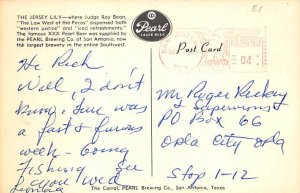 THE JERSEY LILY—where Judge Roy Bean,
"The Law West of the Pecos" dispensed both
"western justice" and "iced refreshments." The
famous XXX Pearl Beer was supplied by
the PEARL Brewing Co. of San Antonio, now
the largest brewery in the entire Southwest.
E1
XXX
Pearl
LAGER BEER
Post Card
04
Hi Rick
Well, I don't
know, June was
a fast & furious
week - Going
Fishing
you Wed
Mr Roger
PO Box 66
Opa city opla
Stop 1-12
The Corral, PEARL Brewing Co., San Antonio, Texas